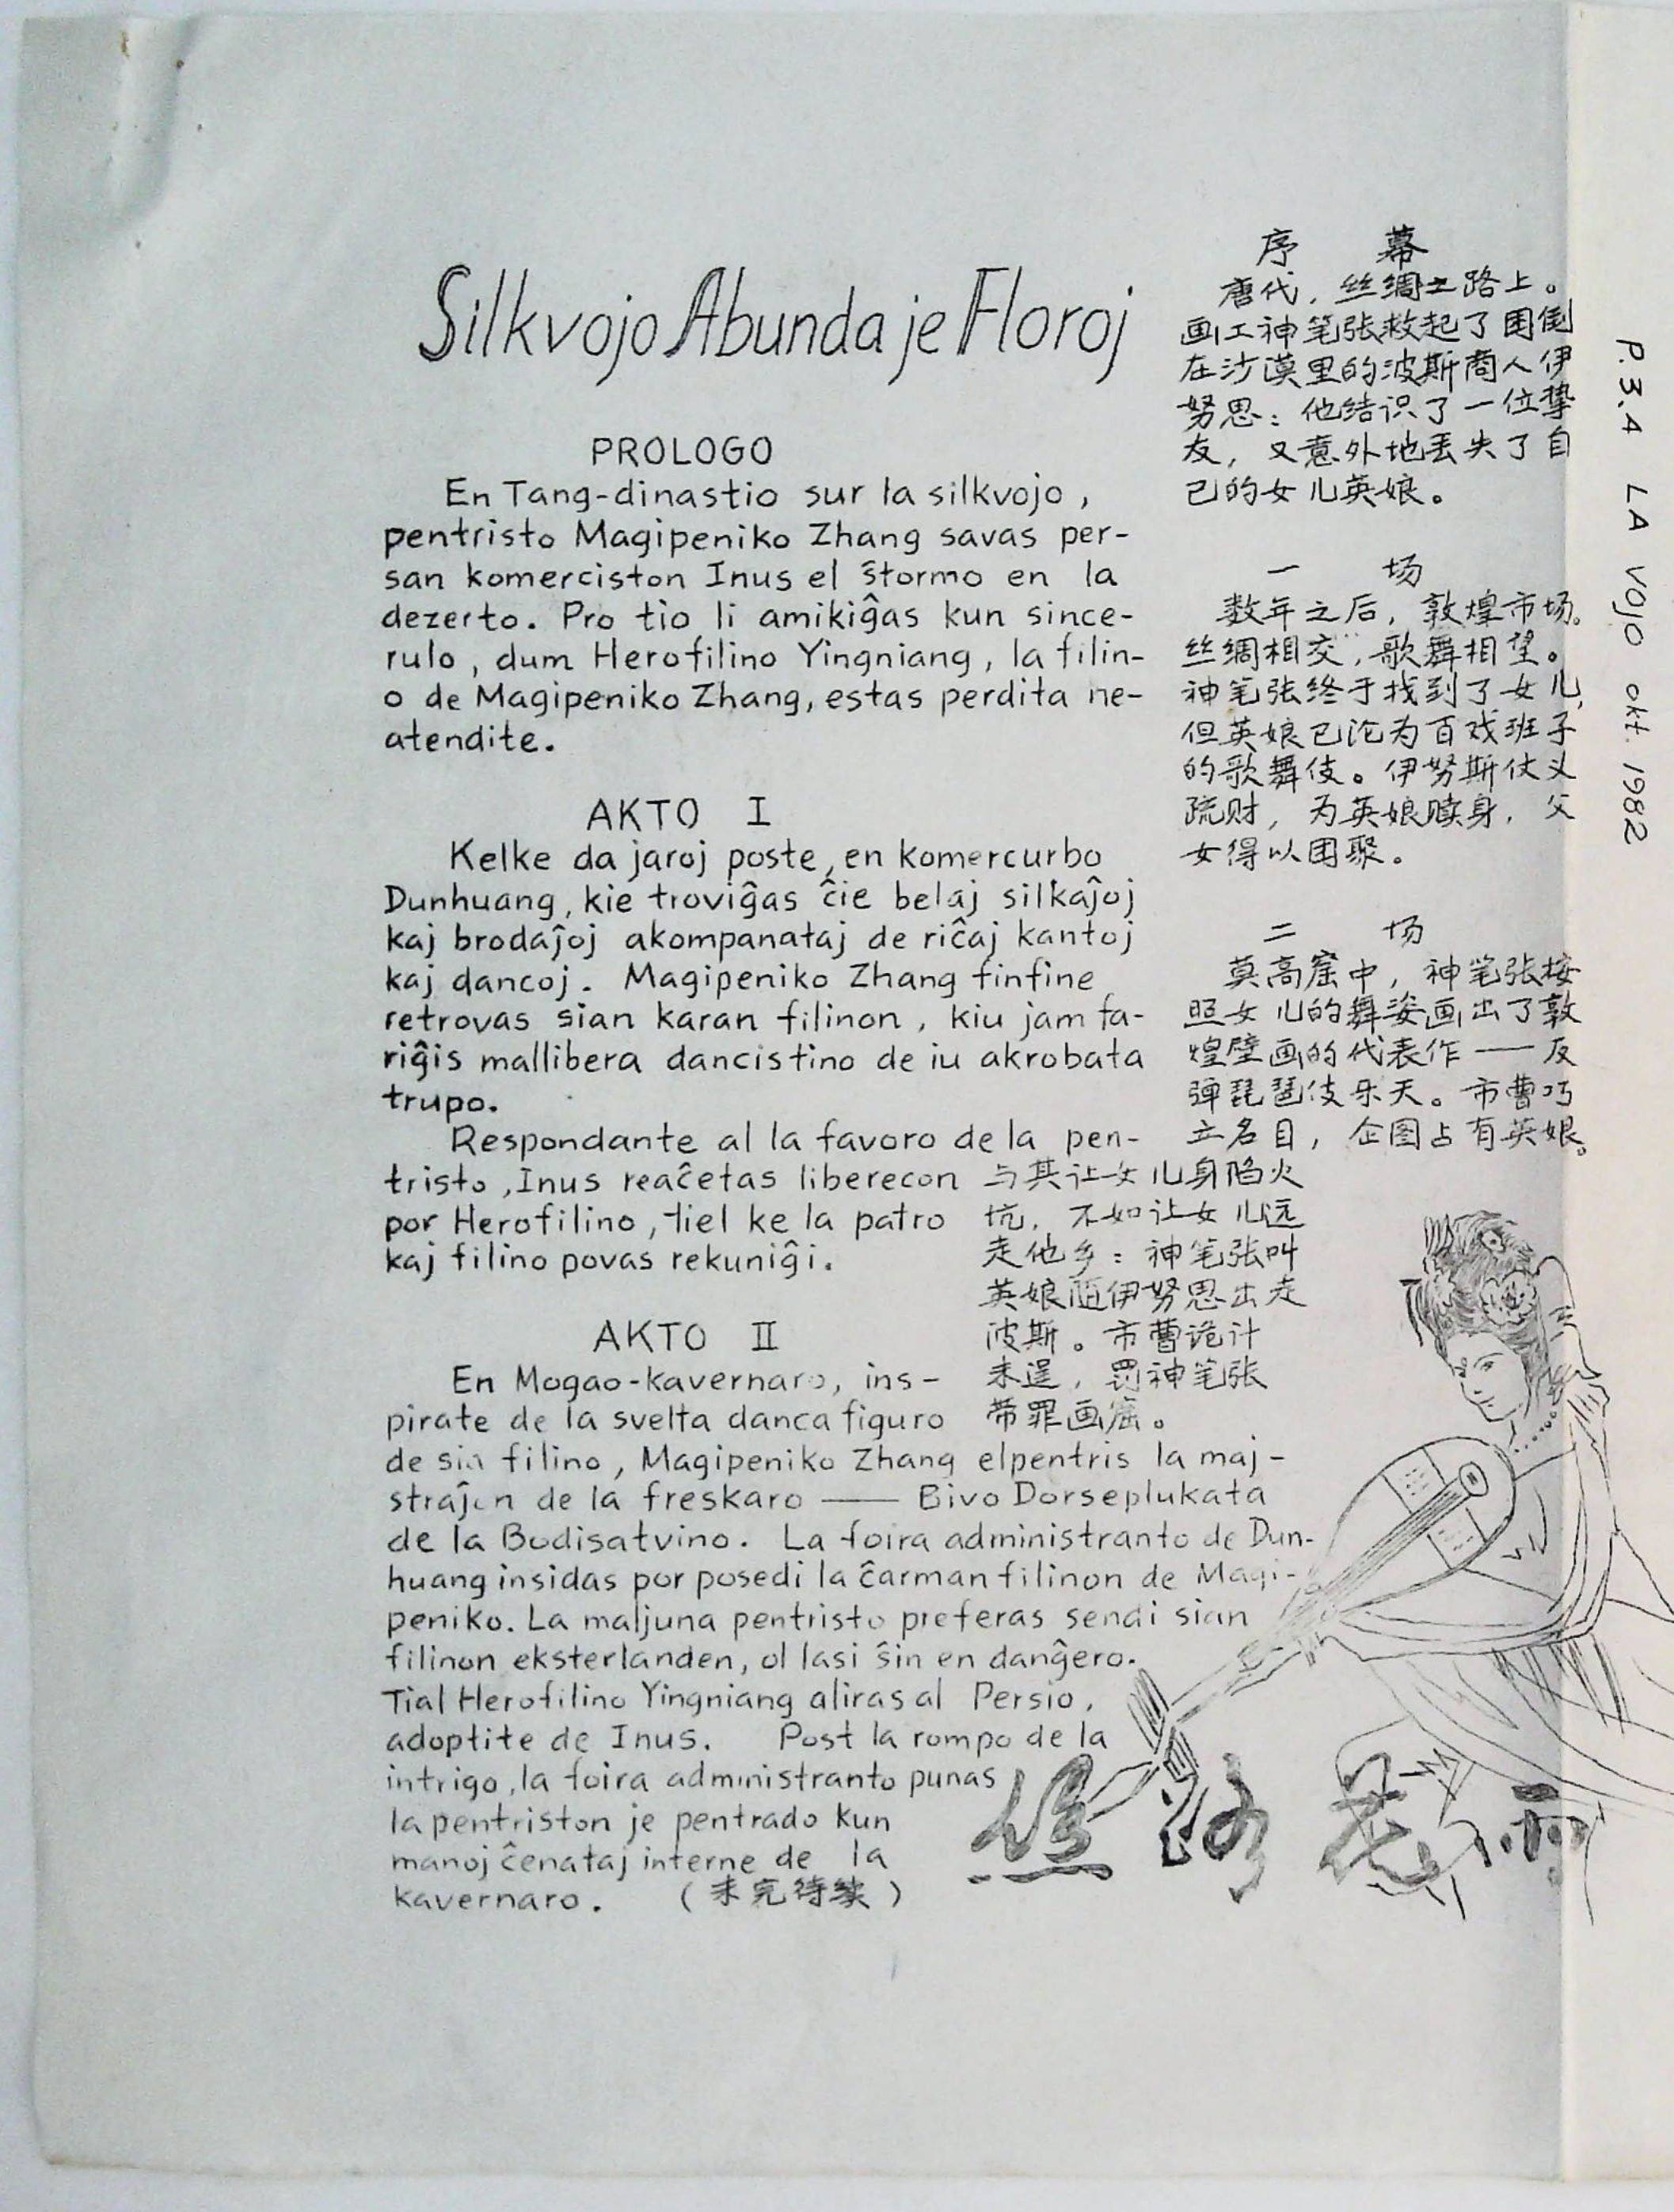 Silkvojo Abunda je Floroj
PROLOGO
En Tang-dinastio sur la silkvojo,
pentristo Magipeniko Zhang savas per-
san komerciston Inus el ŝtormo en la
dezerto. Pro tio li amikiĝas kun since-
rulo, dum Herofilino Yingniang, la filin-
o de Magipeniko Zhang, estas perdita ne-
atendite.
AKTO I
Kelke da jaroj poste, en komercurbo
Dunhuang, kie troviĝas ĉie belaj silkaĵoj
kaj brodaĵoj akompanataj de riĉaj kantoj
kaj dancoj. Magipeniko Zhang finfine
retrovas sian karan filinon, kiu jam fa-
riĝis mallibera dancistino de iu akrobata
trupo.
Respondante al la favoro de la pen-
tristo, Inus reaĉetas liberecon
por Herofilino, tiel ke la patro
kaj filino povas rekuniĝi.
AKTO II
En Mogao-kavernaro, ins-
pirate de la svelta danca figuro
de sia filino, Magipeniko Zhang elpentris la maj-
straĵon de la freskaro —— Bivo Dorseplukata
de la Bodisatvino. La foira administranto de Dun-
huang insidas por posedi la ĉarman filinon de Magi-
peniko. La maljuna pentristo preferas sendi sian
filinon eksterlanden, ol lasi ŝin en danĝero.
Tial Herofilino Yingniang aliras al Persio,
adoptite de Inus. Post la rompo de la
intrigo, la foira administranto punas
la pentriston je pentrado kun
manoj ĉenataj interne de la
kavernaro. (未完待续)
序 幕
唐代，丝绸之路上。
画工神笔张救起了困倒
在沙漠里的波斯商人伊
努思：他结识了一位挚
友，又意外地丢失了自
己的女儿英娘。
一 场
数年之后，敦煌市场。
丝绸相交，歌舞相望。
神笔张终于找到了女儿，
但英娘已沦为百戏班子
的歌舞伎。伊努斯仗义
疏财，为英娘赎身，父
女得以团聚。
二 场
莫高窟中，神笔张按
照女儿的舞姿画出了敦
煌壁画的代表作——反
弹琵琶伎乐天。市曹巧
立名目，企图占有英娘。
与其让女儿身陷火
坑，不如让女儿远
走他乡：神笔张叫
英娘随伊努思出走
波斯。市曹诡计
未逞，罚神笔张
带罪画窟。
丝路花雨
P.3.4 LA VOJO okt. 1982